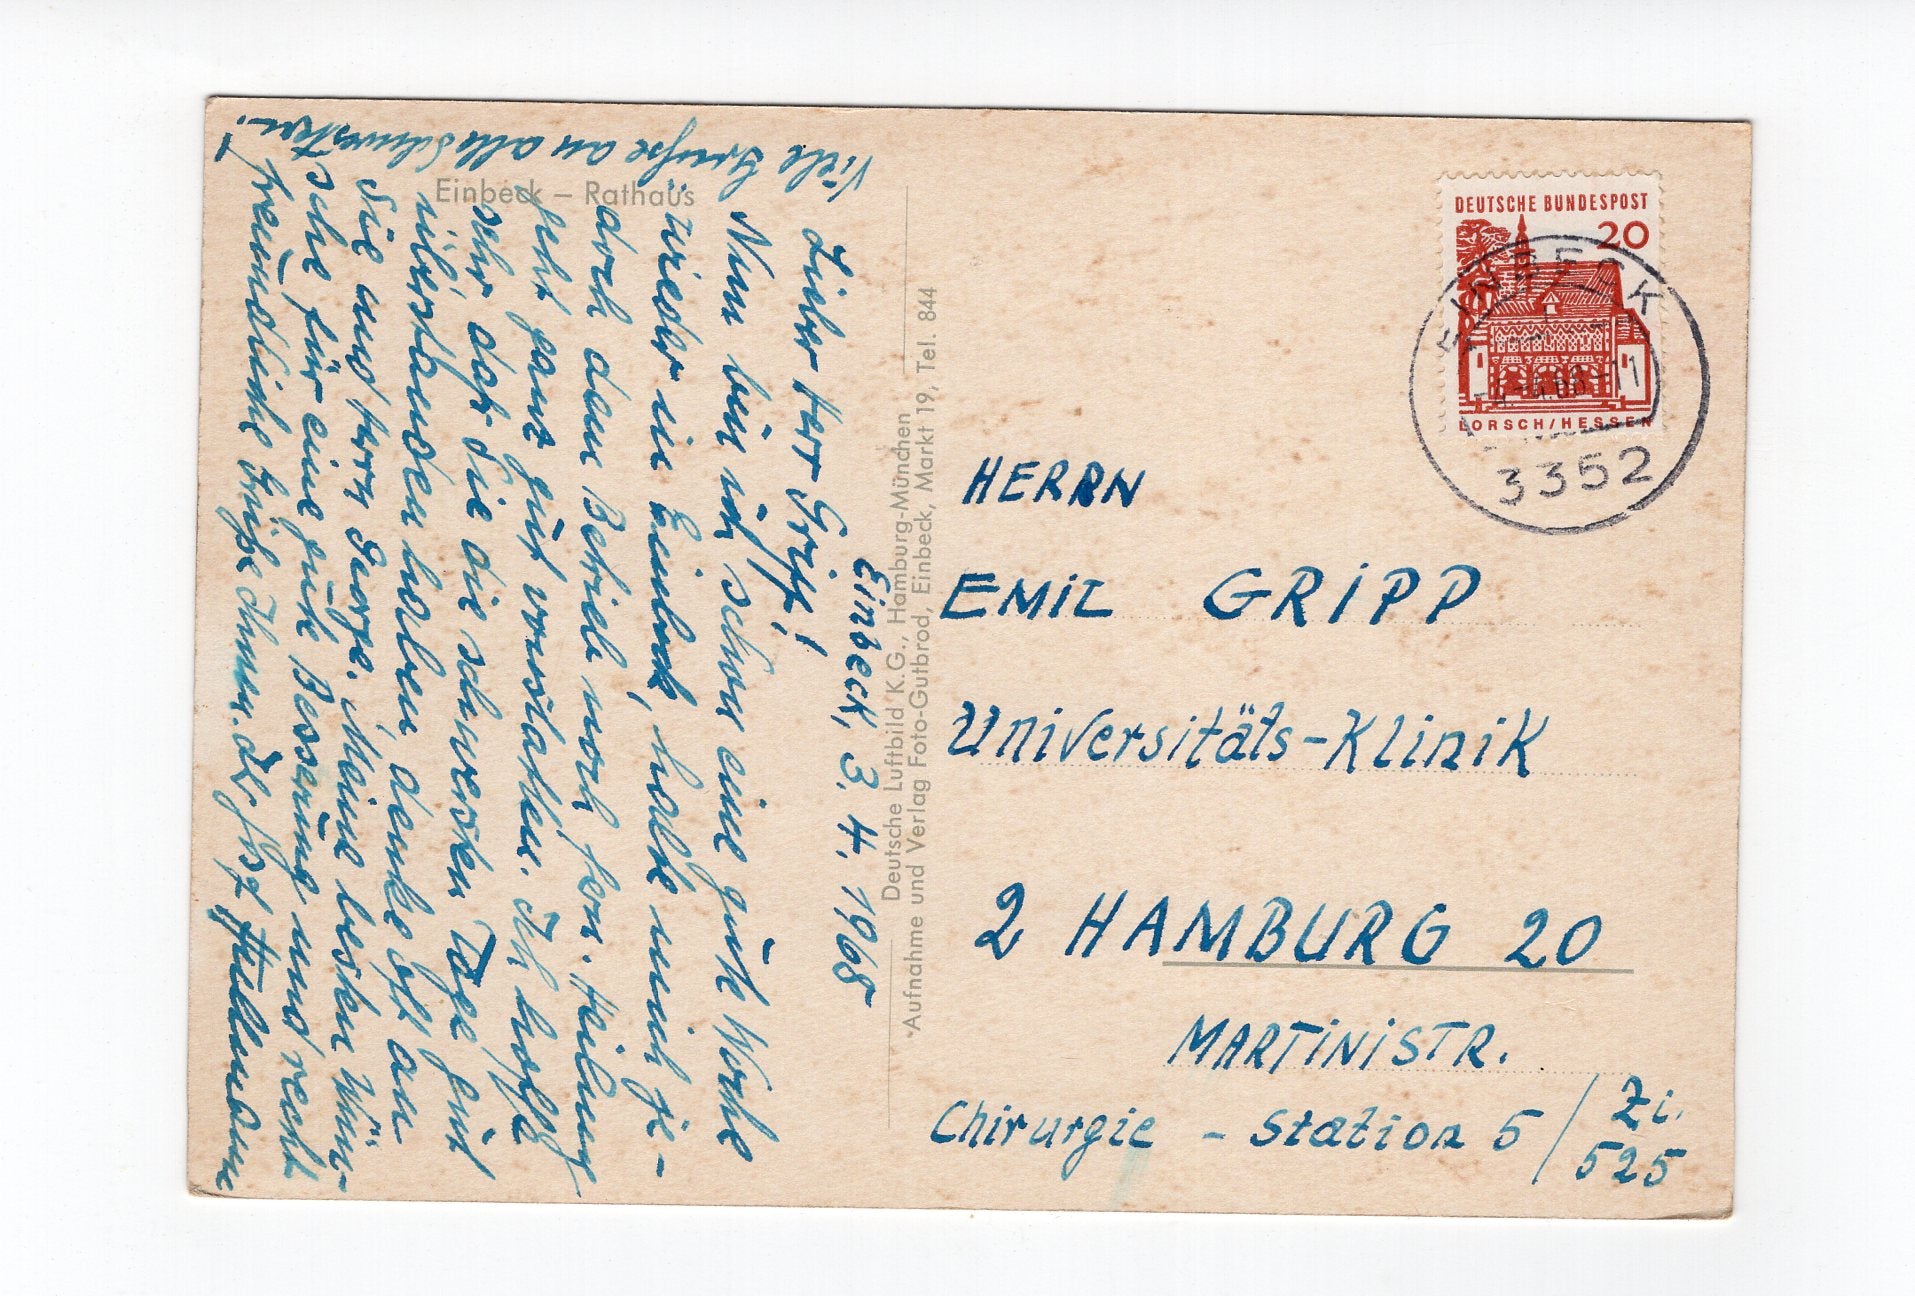 Einbeck – Rathaus
Einbeck, 3. 4. 1968
Lieber Herr Gripp!
Nun bin ich schon eine gute Woche
wieder in Einbeck, habe mich je-
doch dem Betrieb noch fern. Heilung
geht ganz gut vonstatten. Ich hoffe
sehr, daß Sie die schweren Tage gut
überstanden haben, denke oft an
Sie und Herrn George. Meine besten Wün-
sche für eine gute Besserung und recht
freundliche Grüße Ihnen. Ihr
Viele Grüße an alle Schwestern!
Deutsche Luftbild K.G., Hamburg-München
Aufnahme und Verlag Foto-Gutbrod, Einbeck, Markt 19, Tel. 844
DEUTSCHE BUNDESPOST
20
LORSCH/HESSEN
EINBECK
-4.68-11
3352
HERRN
EMIL GRIPP
Universitäts-Klinik
2 HAMBURG 20
MARTINISTR.
Chirurgie - Station 5 / Zi.
525